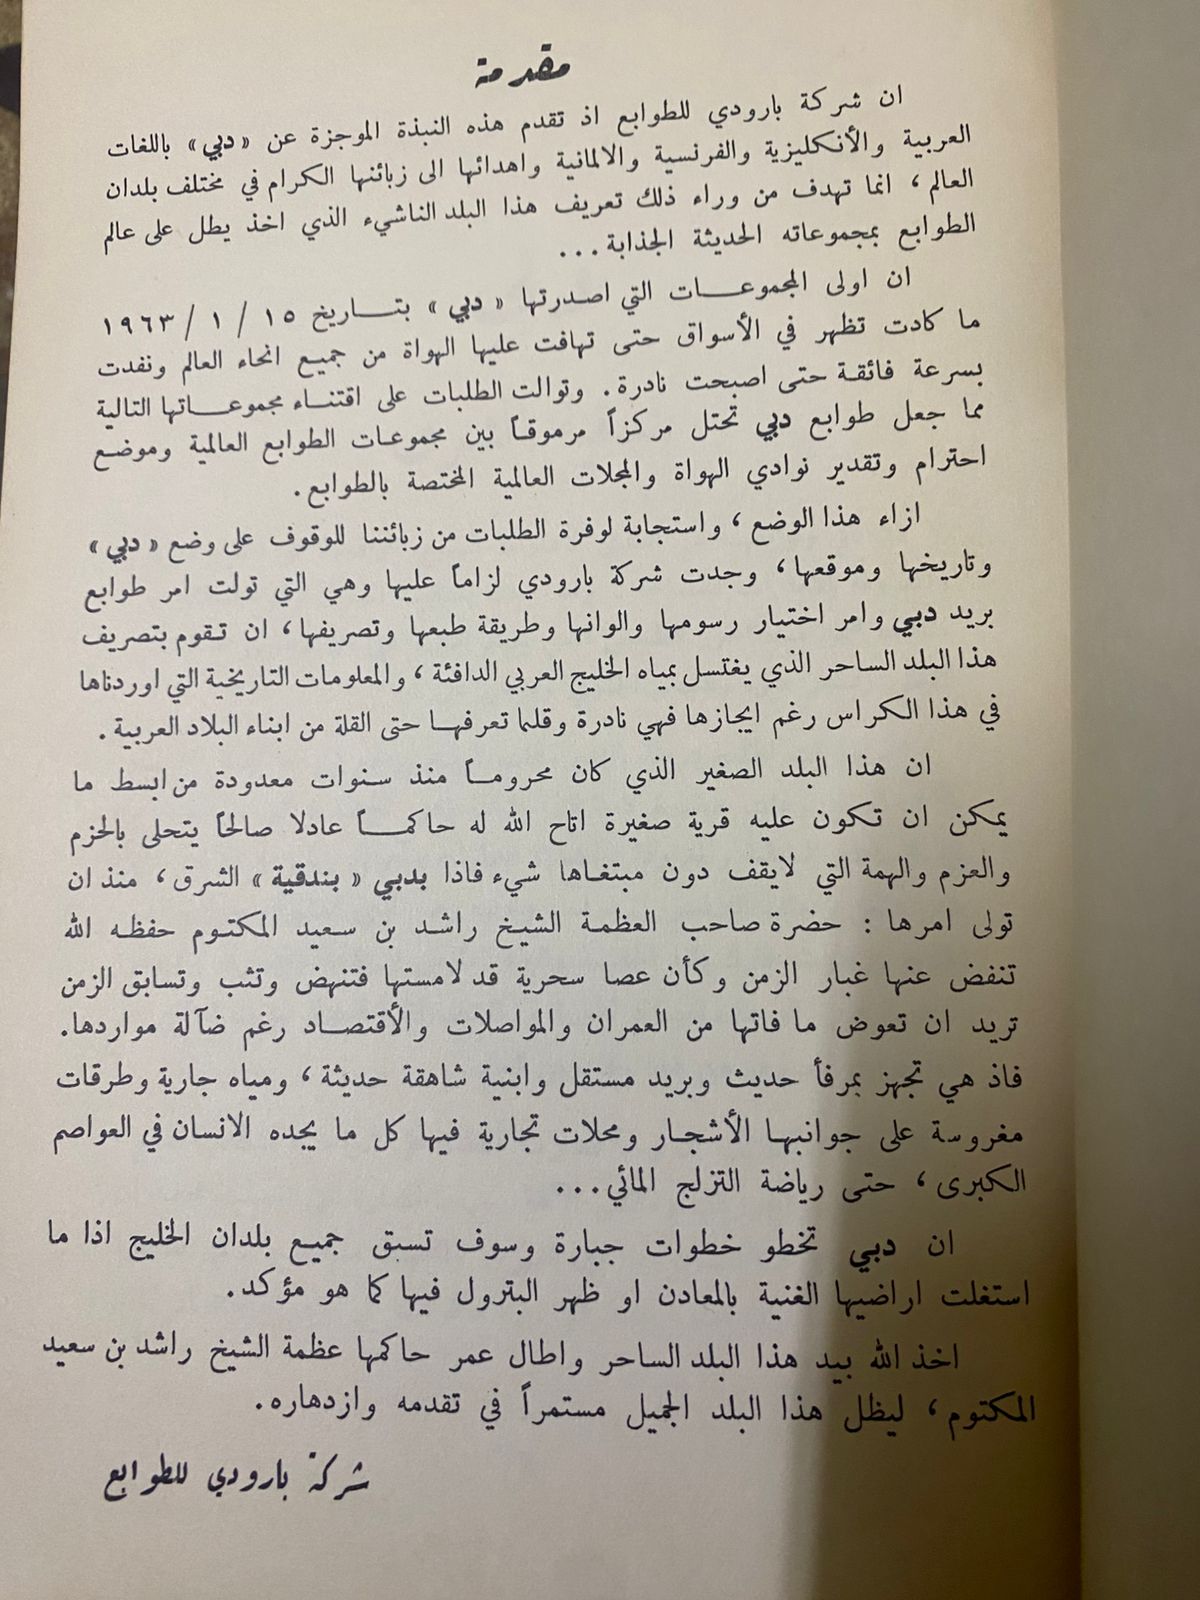 مقدمة
ان شركة بارودي للطوابع اذ تقدم هذه النبذة الموجزة عن «دبي» باللغات
العربية والأنكليزية والفرنسية والالمانية واهدائها الى زبائنها الكرام في مختلف بلدان
العالم ، انما تهدف من وراء ذلك تعريف هذا البلد الناشيء الذي اخذ يطل على عالم
الطوابع بمجموعاته الحديثة الجذابة ...
ان اولى المجموعات التي اصدرتها « دبي » بتاريخ ١٥ / ١ / ١٩٦٣
ما كادت تظهر في الأسواق حتى تهافت عليها الهواة من جميع انحاء العالم ونفدت
بسرعة فائقة حتى اصبحت نادرة . وتوالت الطلبات على اقتناء مجموعاتها التالية
مما جعل طوابع دبي تحتل مركزاً مرموقاً بين مجموعات الطوابع العالمية وموضع
احترام وتقدير نوادي الهواة والمجلات العالمية المختصة بالطوابع .
ازاء هذا الوضع ، واستجابة لوفرة الطلبات من زبائننا للوقوف على وضع « دبي »
وتاريخها وموقعها ، وجدت شركة بارودي لزاماً عليها وهي التي تولت امر طوابع
بريد دبي وامر اختيار رسومها والوانها وطريقة طبعها وتصريفها ، ان تقوم بتصريف
هذا البلد الساحر الذي يغتسل بمياه الخليج العربي الدافئة ، والمعلومات التاريخية التي اوردناها
في هذا الكراس رغم ايجازها فهي نادرة وقلما تعرفها حتى القلة من ابناء البلاد العربية .
ان هذا البلد الصغير الذي كان محروماً منذ سنوات معدودة من ابسط ما
يمكن ان تكون عليه قرية صغيرة اتاح الله له حاكماً عادلا صالحاً يتحلى بالحزم
والعزم والهمة التي لايقف دون مبتغاها شيء فاذا بدبي « بندقية » الشرق ، منذ ان
تولى امرها : حضرة صاحب العظمة الشيخ راشد بن سعيد المكتوم حفظه الله
تنفض عنها غبار الزمن وكأن عصا سحرية قد لامستها فتنهض وتثب وتسابق الزمن
تريد ان تعوض ما فاتها من العمران والمواصلات والأقتصاد رغم ضآلة مواردها .
فاذ هي تجهز بمرفأ حديث وبريد مستقل وابنية شاهقة حديثة ، ومياه جارية وطرقات
مغروسة على جوانبها الأشجار ومحلات تجارية فيها كل ما يجده الانسان في العواصم
الكبرى ، حتى رياضة التزلج المائي ...
ان دبي تخطو خطوات جبارة وسوف تسبق جميع بلدان الخليج اذا ما
استغلت اراضيها الغنية بالمعادن او ظهر البترول فيها كما هو مؤكد .
اخذ الله بيد هذا البلد الساحر واطال عمر حاكمها عظمة الشيخ راشد بن سعيد
المكتوم ، ليظل هذا البلد الجميل مستمراً في تقدمه وازدهاره .
شركة بارودي للطوابع